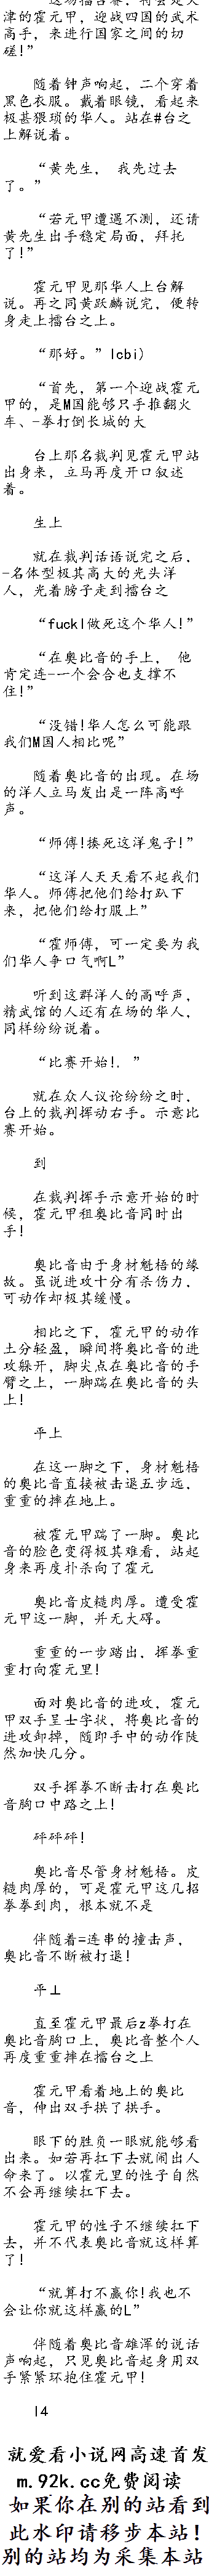 津的霍元甲，迎战四国的武术
高手，来进行国家之间的切
磋!”
随着钟声响起，二个穿着
黑色衣服。戴着眼镜，看起来
极甚猥琐的华人。站在#台之
上解说着。
“黄先生， 我先过去
了。”
“若元甲遭遇不测，还请
黄先生出手稳定局面，拜托
了!”
霍元甲见那华人上台解
说。再之同黄跃麟说完，便转
身走上擂台之上。
“那好。”lcbi)
“首先，第一个迎战霍元
甲的，是M国能够只手推翻火
车、-拳打倒长城的大
台上那名裁判见霍元甲站
出身来，立马再度开口叙述
着。
生上
就在裁判话语说完之后，
-名体型极其高大的光头洋
人，光着膀子走到擂台之
“fuckl做死这个华人!”
“在奥比音的手上， 他
肯定连-一个会合也支撑不
住!”
“没错!华人怎么可能跟
我们M国人相比呢”
随着奥比音的出现。在场
的洋人立马发出是一阵高呼
声。
“师傅!揍死这洋鬼子!”
“这洋人天天看不起我们
华人。师傅把他们给打趴下
来，把他们给打服上”
“霍师傅，可一定要为我
们华人争口气啊L”
听到这群洋人的高呼声，
精武馆的人还有在场的华人，
同样纷纷说着。
“比赛开始!．”
就在众人议论纷纷之时，
台上的裁判挥动右手。示意比
赛开始。
到
在裁判挥手示意开始的时
候，霍元甲租奥比音同时出
手!
奥比音由于身材魁梧的缘
故。虽说进攻十分有杀伤力，
可动作却极其缓慢。
相比之下，霍元甲的动作
土分轻盈，瞬间将奥比音的进
攻躲开，脚尖点在奥比音的手
臂之上，一脚踹在奥比音的头
上!
平上
在这一脚之下，身材魁梧
的奥比音直接被击退五步远，
重重的摔在地上。
被霍元甲踹了一脚。奥比
音的脸色变得极其难看，站起
身来再度扑杀向了霍元
奥比音皮糙肉厚。遭受霍
元甲这一脚，并无大碍。
重重的一步踏出，挥拳重
重打向霍元里!
面对奥比音的进攻，霍元
甲双手呈士字状，将奥比音的
进攻卸掉，随即手中的动作陡
然加快几分。
双手挥拳不断击打在奥比
音胸口中路之上!
砰砰砰!
奥比音尽管身材魁梧。皮
糙肉厚的，可是霍元甲这几招
拳拳到肉，根本就不是
伴随着=连串的撞击声，
奥比音不断被打退!
平⊥
直至霍元甲最后z拳打在
奥比音胸口上，奥比音整个人
再度重重摔在擂台之上
霍元甲看着地上的奥比
音，伸出双手拱了拱手。
眼下的胜负一眼就能够看
出来。如若再扛下去就闹出人
命来了。以霍元里的性子自然
不会再继续扛下去。
霍元甲的性子不继续扛下
去，并不代表奥比音就这样算
了!
“就算打不赢你!我也不
会让你就这样赢的L”
伴随着奥比音雄浑的说话
声响起，只见奥比音起身用双
手紧紧环抱住霍元甲!
l4
就爱看小说网高速首发
m.92k.cc免费阅读
如果你在别的站看到
此水印请移步本站!
别的站均为采集本站